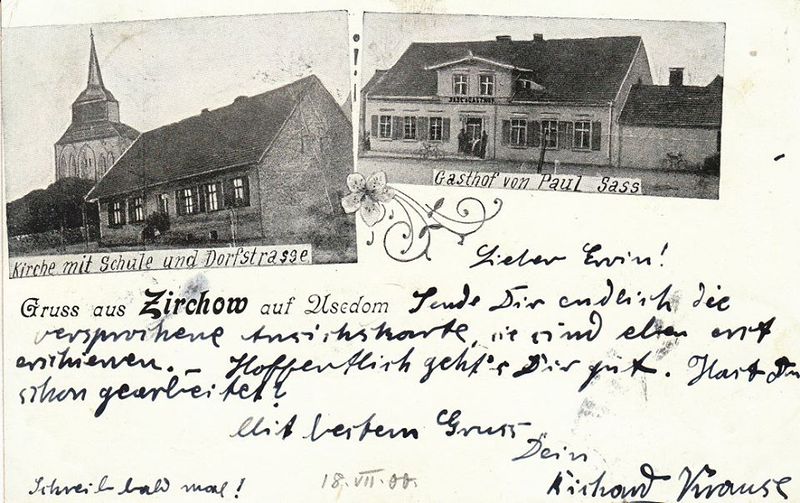 SASS'S GASTHOF
Gasthof von Paul Sass
Kirche mit Schule und Dorfstrasse
Lieber Erwin!
Gruss aus Zirchow auf Usedom Sende Dir endlich die
versprochene Ansichtskarte, sie sind eben erst
erschienen. – Hoffentlich geht's Dir gut. Hast Du
schon gearbeitet?
Mit bestem Gruss
Dein
Richard Krause
Schreib bald mal!
18.VII.00.